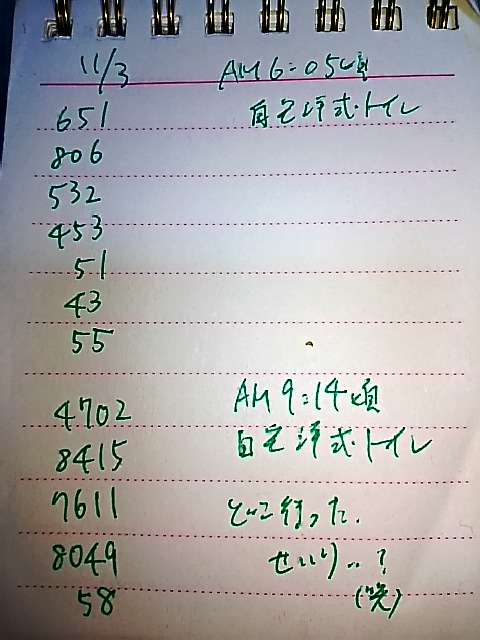 11/3 AM6:05頃
651 自宅洋式トイレ
806
532
453
51
43
55
4702 AM9:14頃
8415 自宅洋式トイレ
7611 どこ行った.
8049 せいり..?
58 (笑)